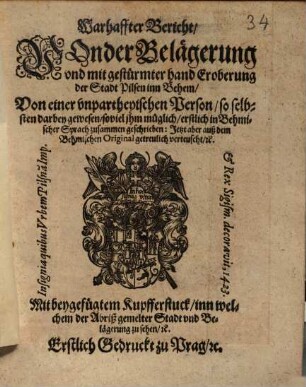 34
Warhaffter Bericht/
VOnder Belägerung
vnd mit gestürmter hand Eroberung
der Stadt Pilsen inn Behem/
Von einer vnpartheyischen Person/ so selb-
sten darbey gewesen/ soviel jhm müglich/ erstlich in Behmi-
scher Sprach zusammen geschrieben: Jetzt aber auß dem
Behmischen Original getreulich verteuscht/ ꝛc.
Insignia quibus Vrbem Pilsnã Imp.
& Rex Sigism. decoravit, 1423.
Mit beygefügtem Kupfferstuck/ inn wel-
chem der Abriß gemelter Stadt vnd Be-
lägerung zu sehen/ ꝛc.
Erstlich Gedruckt zu Prag/ ꝛc.